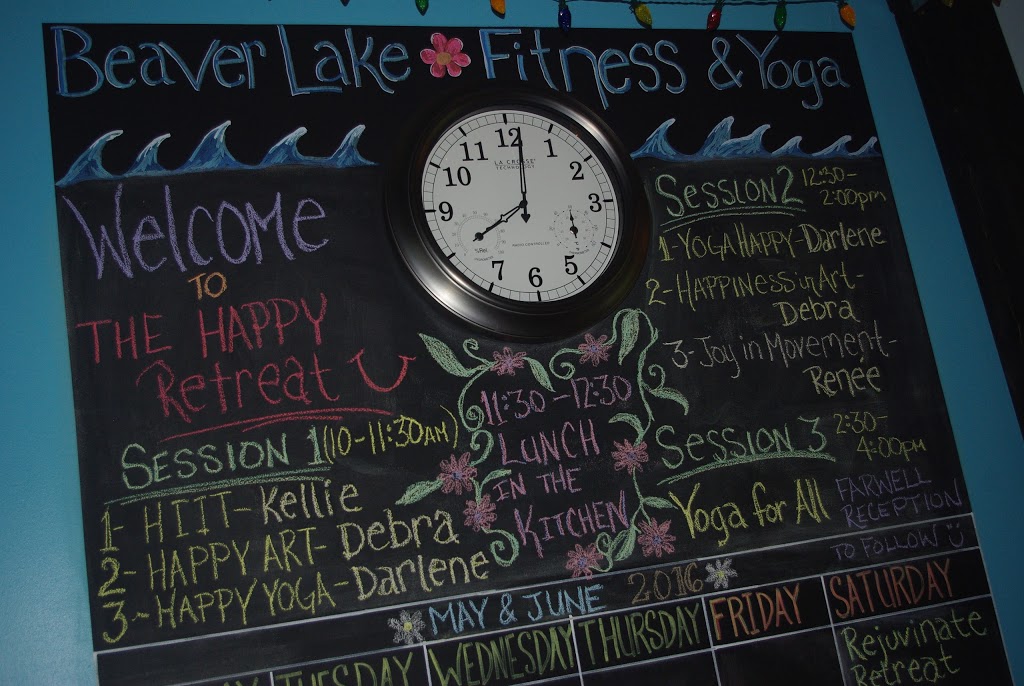 Beaver Lake Fitness & Yoga
12
1
2
3
5
6
7
9
10
11
LA CROSSE
TECHNOLOGY
Welcome
TO
THE HAPPY
Retreat
SESSION 1 (10-11:30AM)
1- HIIT- Kellie
2- HAPPY ART- Debra
3- HAPPY YOGA- Darlene
11:30-12:30
LUNCH
IN THE
KITCHEN
SESSION 2 12:30-
2:00pm
1-YOGA HAPPY-Darlene
2-HAPPINESS in Art-
Debra
3-Joy in Movement-
Renée
SESSION 3 2:30-
4:00pm
Yoga for All
FARWELL
RECEPTION
TO FOLLOW
MAY & JUNE 2016
TUESDAY WEDNESDAY THURSDAY FRIDAY SATURDAY
Rejuvinate
Retreat